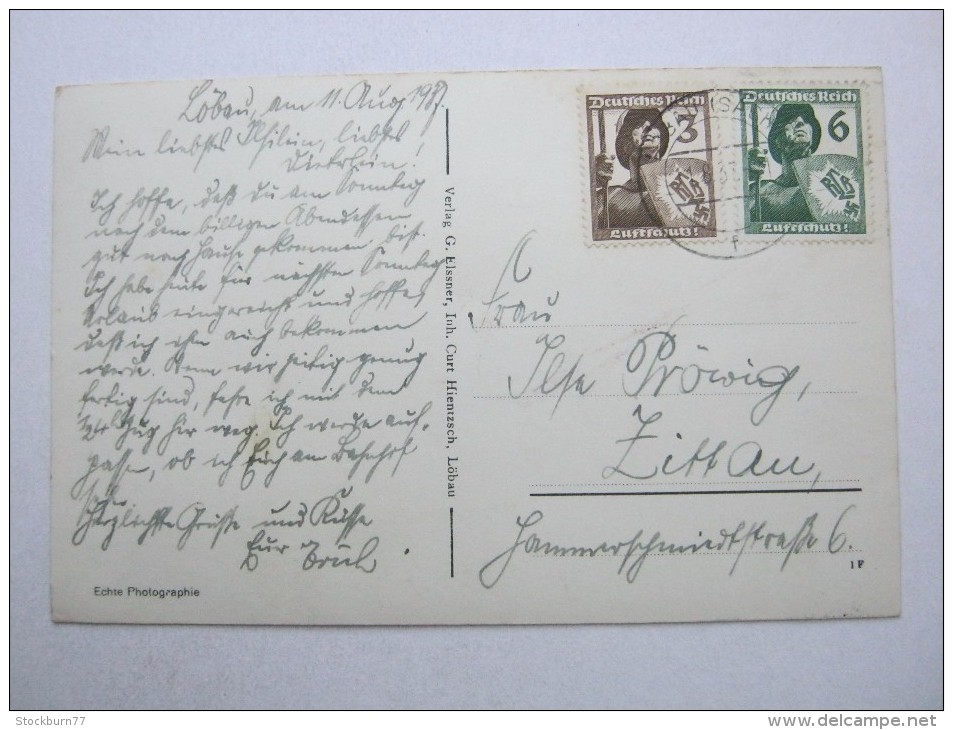 Löbau, am 11. Aug. 1937.
Mein liebstes Ilselein, liebstes
Dieterlein!
Ich hoffe, daß Du am Sonntag
nach dem billigen Abendessen
gut nach Hause gekommen bist.
Ich habe heute für nächsten Sonntag
Urlaub eingereicht und hoffe,
daß ich ihn auch bekommen
werde. Wenn wir zeitig genug
fertig sind, fahre ich mit dem
Zug hier weg. Ich werde auf-
passen, ob ich Euch am Bahnhof
Herzlichste Grüsse und Küsse
Euer Erich.
Echte Photographie
Verlag G. Elssner, Inh. Curt Hientzsch, Löbau
Deutsches Reich
3
Luftschutz!
Deutsches Reich
6
RLB
Luftschutz!
f
Frau
Ilse Pröwig,
Zittau,
Hammerschmiedtstraße 6.
1F
Stockburn77
delcampe.net